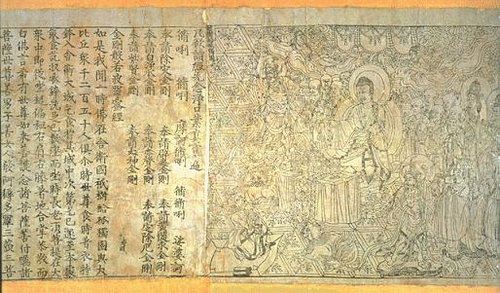 凡欲讀經先念淨口業真言一遍
脩唎 脩唎 摩訶脩唎 脩脩唎 娑婆訶
奉請除災金剛 奉請辟毒金剛 奉請黃隨求金剛
奉請白淨水金剛 奉請赤聲金剛 奉請定除厄金剛
奉請紫賢金剛 奉請大神金剛
金剛般若波羅蜜經
如是我聞一時佛在舍衛國祇樹給孤獨園與大
比丘眾千二百五十人俱尒時世尊食時著衣持
鉢入舍衛大城乞食於其城中次第乞已還至本處
飯食訖收衣鉢洗足已敷座而坐時長老須菩提在大
眾中即從座起偏袒右肩右膝著地合掌恭敬而
白佛言希有世尊如來善護念諸菩薩善付囑諸
菩薩世尊善男子善女人發阿耨多羅三藐三菩